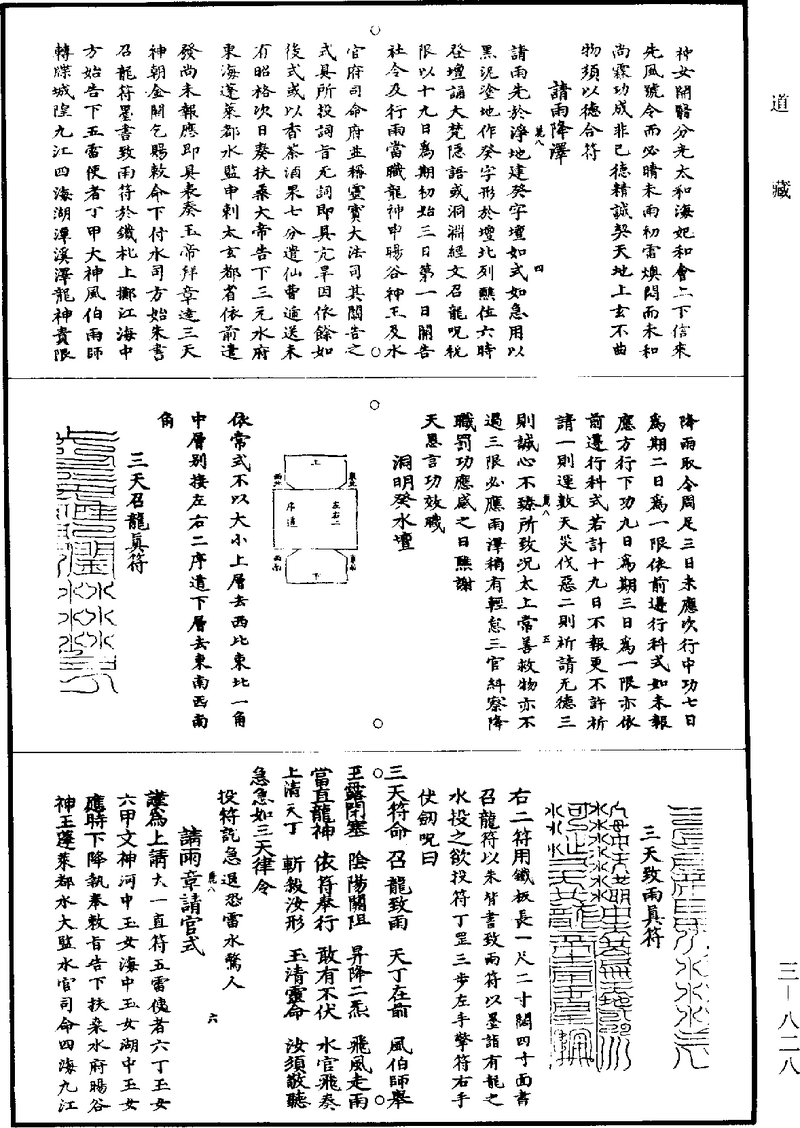 道藏
神女開翳分光太和海妃和會二下信來
先風號令而必晴未雨初雷燠悶而未和
尚霖功成非已德精誠契天地上玄不曲
物須以德合符
請雨降澤
請雨先於淨地建癸字壇如式如急用以
黑泥塗地作癸字形於壇北列醮位六時
登壇誦大梵隱語或洞淵經文召龍呪祝
限以十九日為期初始三日第一日關告
社令及行雨當職龍神申暘谷神王及水
官府司命府並稱靈寶大法司其關告之
式具所投詞旨无詞即具亢旱因依餘如
後式或以香茶酒果七分遣仙曹遞送未
有昭格次日奏扶桑大帝告下三元水府
東海蓬萊都水監申刺太玄都省依前遣
發尚未報應即具表奏玉帝拜章達三天
神朝金闕乞賜敕命下付水司方始朱書
召龍符墨書致雨符於鐵札上擲江海中
方始告下五雷使者丁甲大神風伯雨師
轉牒城隍九江四海湖潭溪澤龍神責限
降雨取令周足三日未應次行中功七日
為期二日為一限依前遷行科式如未報
應方行下功九日為期三日為一限亦依
前遷行科式若計十九日不報更不許祈
請一則運數天災伐惡二則祈請无德三
則誠心不臻所致況太上常善救物亦不
過三限必應雨澤稍有輕怠三官糾察降
職罰功應感之日醮謝
天恩言功效職
洞明癸水壇
上
左右二
序道
下
依常式不以大小上層去西北東北一角
中層別接左右二序道下層去東南西南
角
三天召龍真符
三天致雨真符
右二符用鐵板長一尺二寸闊四寸面書
召龍符以朱背書致雨符以墨詣有龍之
水投之欲投符丁罡三步左手擎符右手
伏劒呪曰
三天符命 召龍致雨 天丁在前 風伯師舉
玉露閉塞 陰陽關阻 昇降二炁 飛風走雨
當直龍神 依符奉行 敢有不伏 水官飛奏
上清天丁 斬殺汝形 玉清靈命 汝須敬聽
急急如三天律令
投符訖急退恐雷水驚人
請雨章請官式
謹為上請太一直符五雷使者六丁玉女
六甲文神河中玉女海中玉女湖中玉女
應時下降執奉敕旨告下扶桑水府暘谷
神王蓬萊都水大監水官司命四海九江
三－八二八